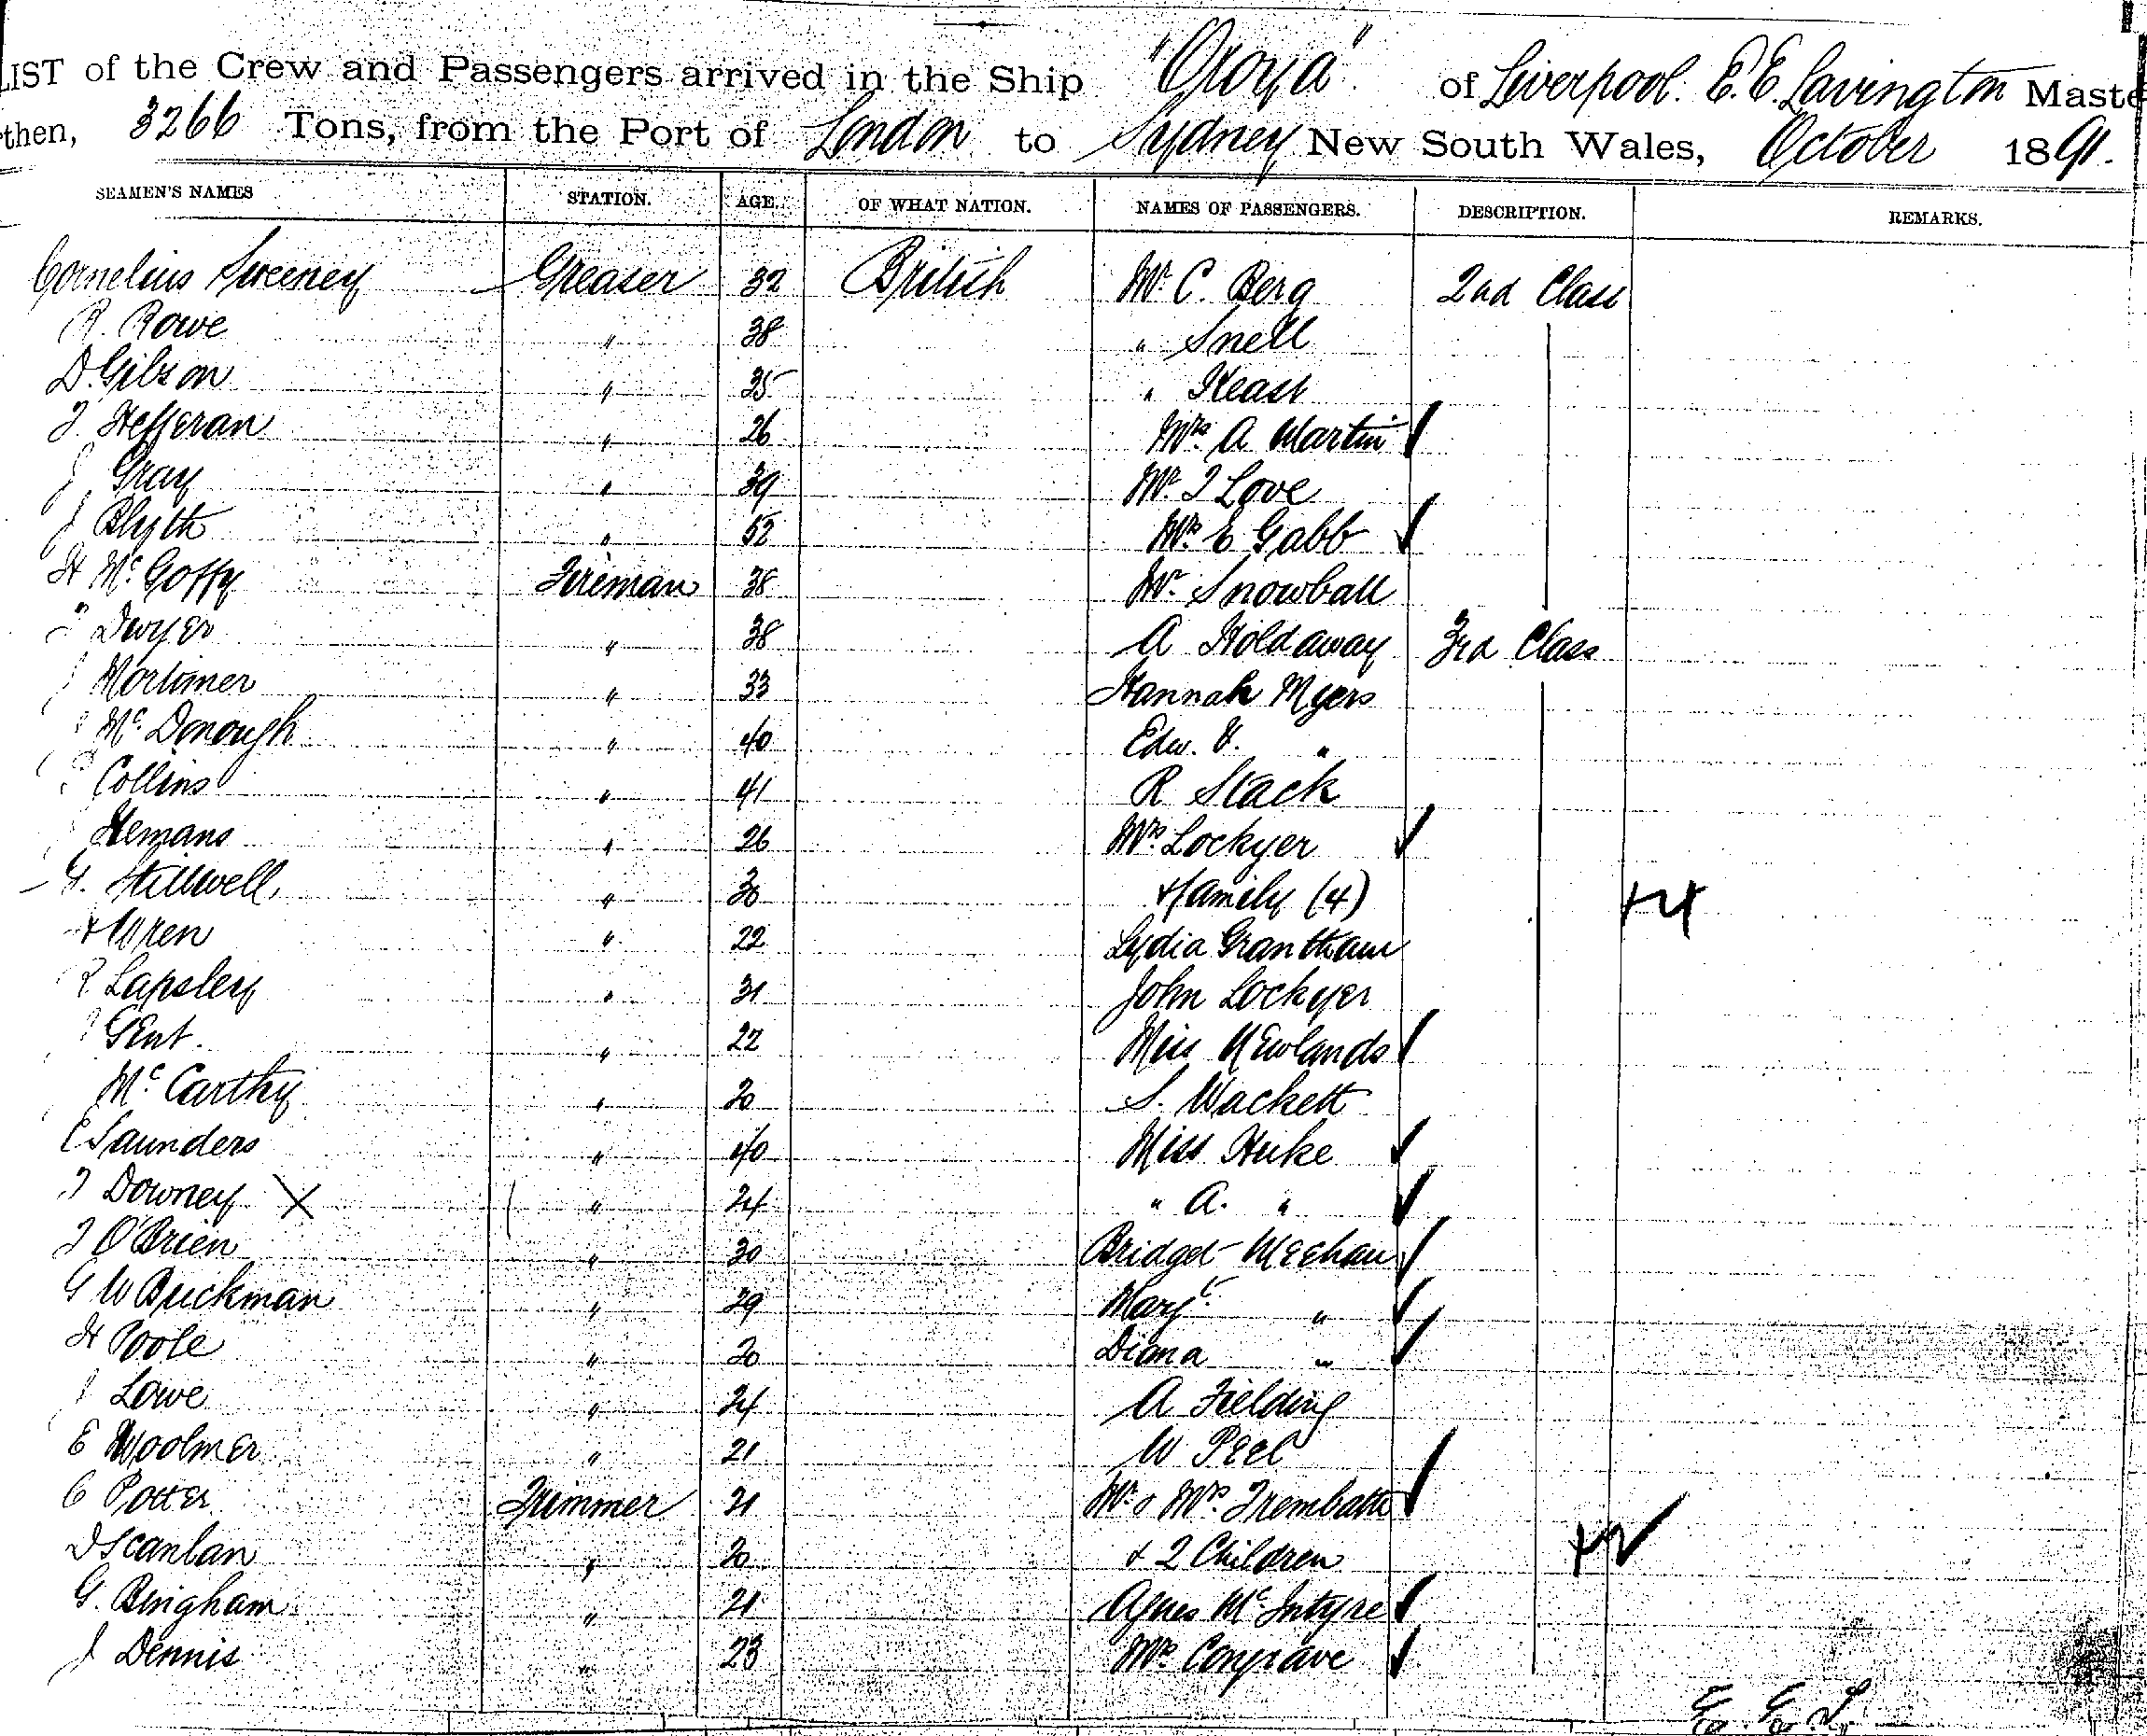 LIST of the Crew and Passengers arrived in the Ship "Oroya" of Liverpool. E. E. Lavington Maste
then, 3266 Tons, from the Port of London to Sydney New South Wales, October 1891.
SEAMEN'S NAMES STATION. AGE. OF WHAT NATION. NAMES OF PASSENGERS. DESCRIPTION. REMARKS.
Cornelius Sweeney Greaser 32 British Mr C. Berg 2nd Class
R. Rowe " 38 " Snell
D. Gibson " 35 " Keast
J Hefferan " 26 Mrs A Martin
J Gray " 39 Mr J Love
J Blyth " 52 Mrs E Gabb
H McGoffy Fireman 38 Mr Snowball
Dwyer " 38 A Holdaway 3rd Class
Mortimer " 33 Hannah Myers
McDonough " 40 Edw. V. "
Collins " 41 R Stack
Hemans " 26 Mrs Lockyer
G. Stillwell " 30 + family (4) +4
Wren " 22 Lydia Grantham
R Lapsley " 31 John Lockyer
Gent. " 22 Miss Newlands
McCarthy " 20 S. Wackett
E Saunders " 40 Miss Huke
J Downey X " 24 " A. "
J O'Brien " 30 Bridget Meehan
G W Buckman " 29 Mary C. "
H Poole " 20 Diana "
J Lowe " 24 A Fielding
E Woolmer " 21 W Peel
C Potter Trimmer 21 Mr & Mrs Trembath
D Scanlan " 20 + 2 Children +2
G. Bingham " 21 Agnes McIntyre
J Dennis " 23 Mrs Congrave
E. E. L.